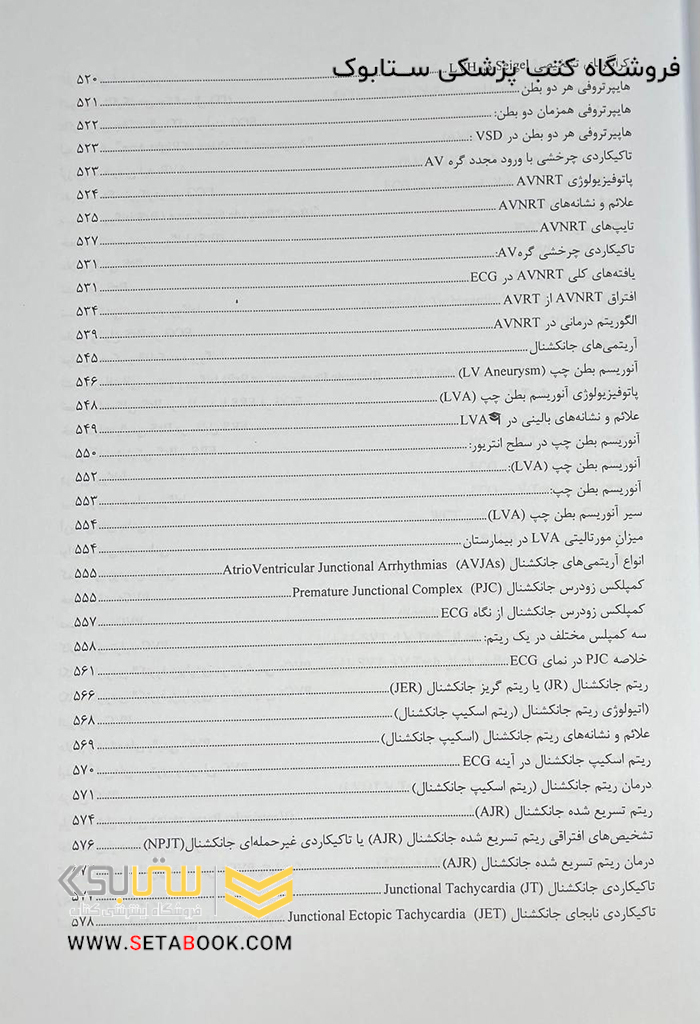 فروشگاه کتب پزشکی ستابوک
Seigel ۵۲۰
هایپرتروفی هر دو بطن ۵۲۱
هایپرتروفی همزمان دو بطن: ۵۲۲
هاپیرتروفی هر دو بطن در VSD : ۵۲۳
تاکیکاردی چرخشی با ورود مجدد گره AV ۵۲۳
پاتوفیزیولوژی AVNRT ۵۲۴
علائم و نشانه‌های AVNRT ۵۲۵
تایپ‌های AVNRT ۵۲۷
تاکیکاردی چرخشی گرهAV: ۵۳۱
یافته‌های کلی AVNRT در ECG ۵۳۱
افتراق AVNRT از AVRT ۵۳۴
الگوریتم درمانی در AVNRT ۵۳۹
آریتمی‌های جانکشنال ۵۴۵
آنوریسم بطن چپ (LV Aneurysm) ۵۴۶
پاتوفیزیولوژی آنوریسم بطن چپ (LVA) ۵۴۸
علائم و نشانه‌های بالینی در LVA ۵۴۹
آنوریسم بطن چپ در سطح انتریور: ۵۵۰
آنوریسم بطن چپ (LVA): ۵۵۲
آنوریسم بطن چپ: ۵۵۳
سیر آنوریسم بطن چپ (LVA) ۵۵۴
میزان مورتالیتی LVA در بیمارستان ۵۵۴
انواع آریتمی‌های جانکشنال AtrioVentricular Junctional Arrhythmias (AVJAs) ۵۵۵
کمپلکس زودرس جانکشنال Premature Junctional Complex (PJC) ۵۵۵
کمپلکس زودرس جانکشنال از نگاه ECG ۵۵۷
سه کمپلس مختلف در یک ریتم: ۵۵۸
خلاصه PJC در نمای ECG ۵۶۱
ریتم جانکشنال (JR) یا ریتم گریز جانکشنال (JER) ۵۶۶
(اتیولوژی ریتم جانکشنال (ریتم اسکیپ جانکشنال) ۵۶۸
علائم و نشانه‌های ریتم جانکشنال (اسکیپ جانکشنال) ۵۶۹
ریتم اسکیپ جانکشنال در آینه ECG ۵۷۰
درمان ریتم جانکشنال (ریتم اسکیپ جانکشنال) ۵۷۱
ریتم تسریع شده جانکشنال (AJR) ۵۷۴
تشخیص‌های افتراقی ریتم تسریع شده جانکشنال (AJR) یا تاکیکاردی غیرحمله‌ای جانکشنال(NPJT) ۵۷۶
درمان ریتم تسریع شده جانکشنال (AJR)
تاکیکاردی جانکشنال Junctional Tachycardia (JT)
تاکیکاردی نابجای جانکشنال Junctional Ectopic Tachycardia (JET) ۵۷۸
WWW.SETABOOK.COM